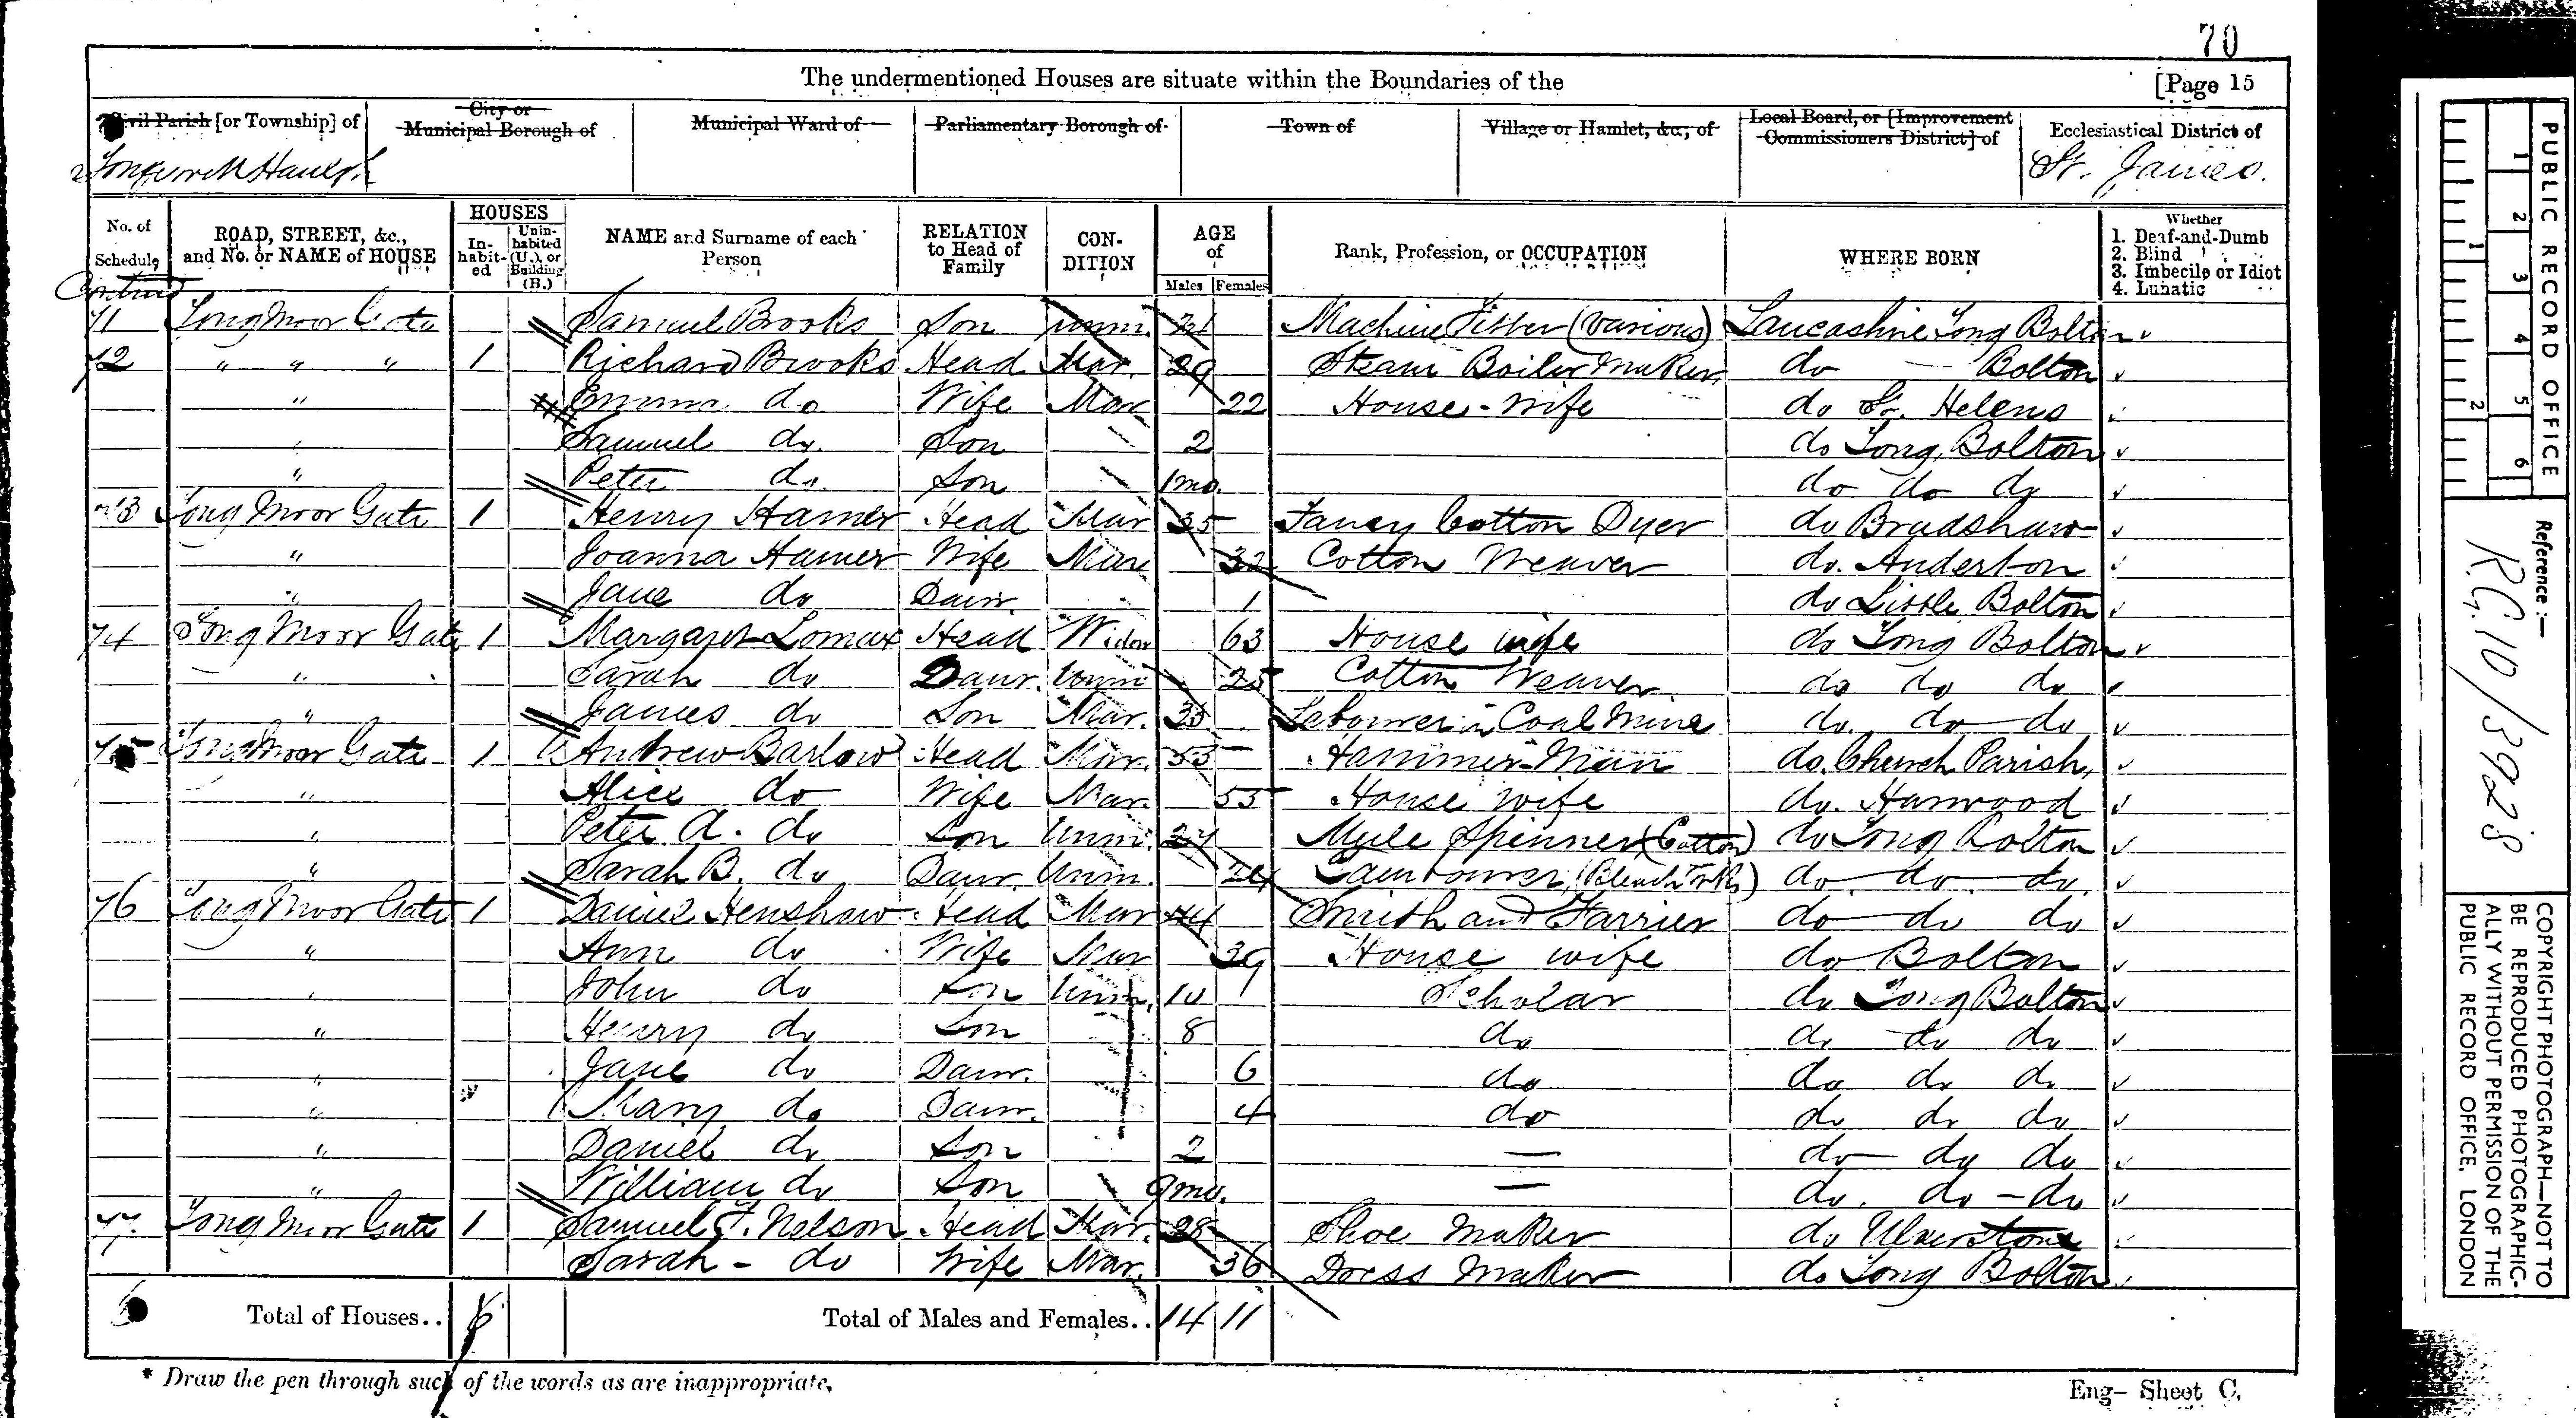 70
The undermentioned Houses are situate within the Boundaries of the
[Page 15
Civil Parish [or Township] of
City or Municipal Borough of
Municipal Ward of
Parliamentary Borough of
Town of
Village or Hamlet, &c., of
Local Board, or [Improvement Commissioners District] of
Ecclesiastical District of
Tong with Haulgh
St. James.
No. of Schedule
ROAD, STREET, &c., and No. or NAME of HOUSE
HOUSES
In-habit-ed
Unin-habited (U.), or Building (B.)
NAME and Surname of each Person
RELATION to Head of Family
CON-DITION
AGE of
Males
Females
Rank, Profession, or OCCUPATION
WHERE BORN
Whether
1. Deaf-and-Dumb
2. Blind
3. Imbecile or Idiot
4. Lunatic
71 Tong Moor Gate Samuel Brooks Son Unm. 21 Machine Fitter (various) Lancashire Tong Bolton
72 " " " 1 Richard Brooks Head Mar. 29 Steam Boiler Maker do — Bolton
" Emma do Wife Mar 22 House-Wife do St. Helens
Samuel do Son 2 do Tong Bolton
" Peter do. Son 1mo. do do do
73 Tong Moor Gate 1 Henry Hamer Head Mar 35 Fancy Cotton Dyer do Bradshaw
" Joanna Hamer Wife Mar 32 Cotton Weaver do. Anderton
" Jane do Daur. 1 do Little Bolton
74 Tong Moor Gate 1 Margaret Lomax Head Widow 63 House wife do Tong Bolton
" Sarah do Daur. Unm 25 Cotton Weaver do do do
" James do Son Mar. Labourer in Coal Mine do. do do
75 Tong Moor Gate 1 Andrew Barlow Head Mar. 53 Hammer-Man do. Church Parish,
" Alice do Wife Mar. 55 House wife do. Harwood
" Peter A. do Son Unm. Mule Spinner (Cotton) do Tong Bolton
" Sarah B. do Daur. Unm. (Bleach Wks) do do do.
76 Tong Moor Gate 1 Daniel Henshaw Head Mar 44 Smith and Farrier do do do
" Ann do Wife Mar 39 House wife do Bolton
" John do Son Unm. 10 Scholar do Tong Bolton
" Henry do Son 8 do do do do
" Jane do Daur. 6 do do do do
" Mary do Daur. 4 do do do do
" Daniel do Son 2 — do do do
" William do Son 9mo. — do. do - do
77 Tong Moor Gate 1 Samuel F. Nelson Head Mar. 28 Shoe Maker do Ulverstone
Sarah - do Wife Mar. 36 Dress Maker do Tong Bolton
Total of Houses.. 6
Total of Males and Females.. 14 11
* Draw the pen through such of the words as are inappropriate.
Eng- Sheet C.
PUBLIC RECORD OFFICE
1 2 3 4 5 6
1 2
Reference :-
R.G. 10/3928
COPYRIGHT PHOTOGRAPH—NOT TO
BE REPRODUCED PHOTOGRAPHIC-
ALLY WITHOUT PERMISSION OF THE
PUBLIC RECORD OFFICE, LONDON